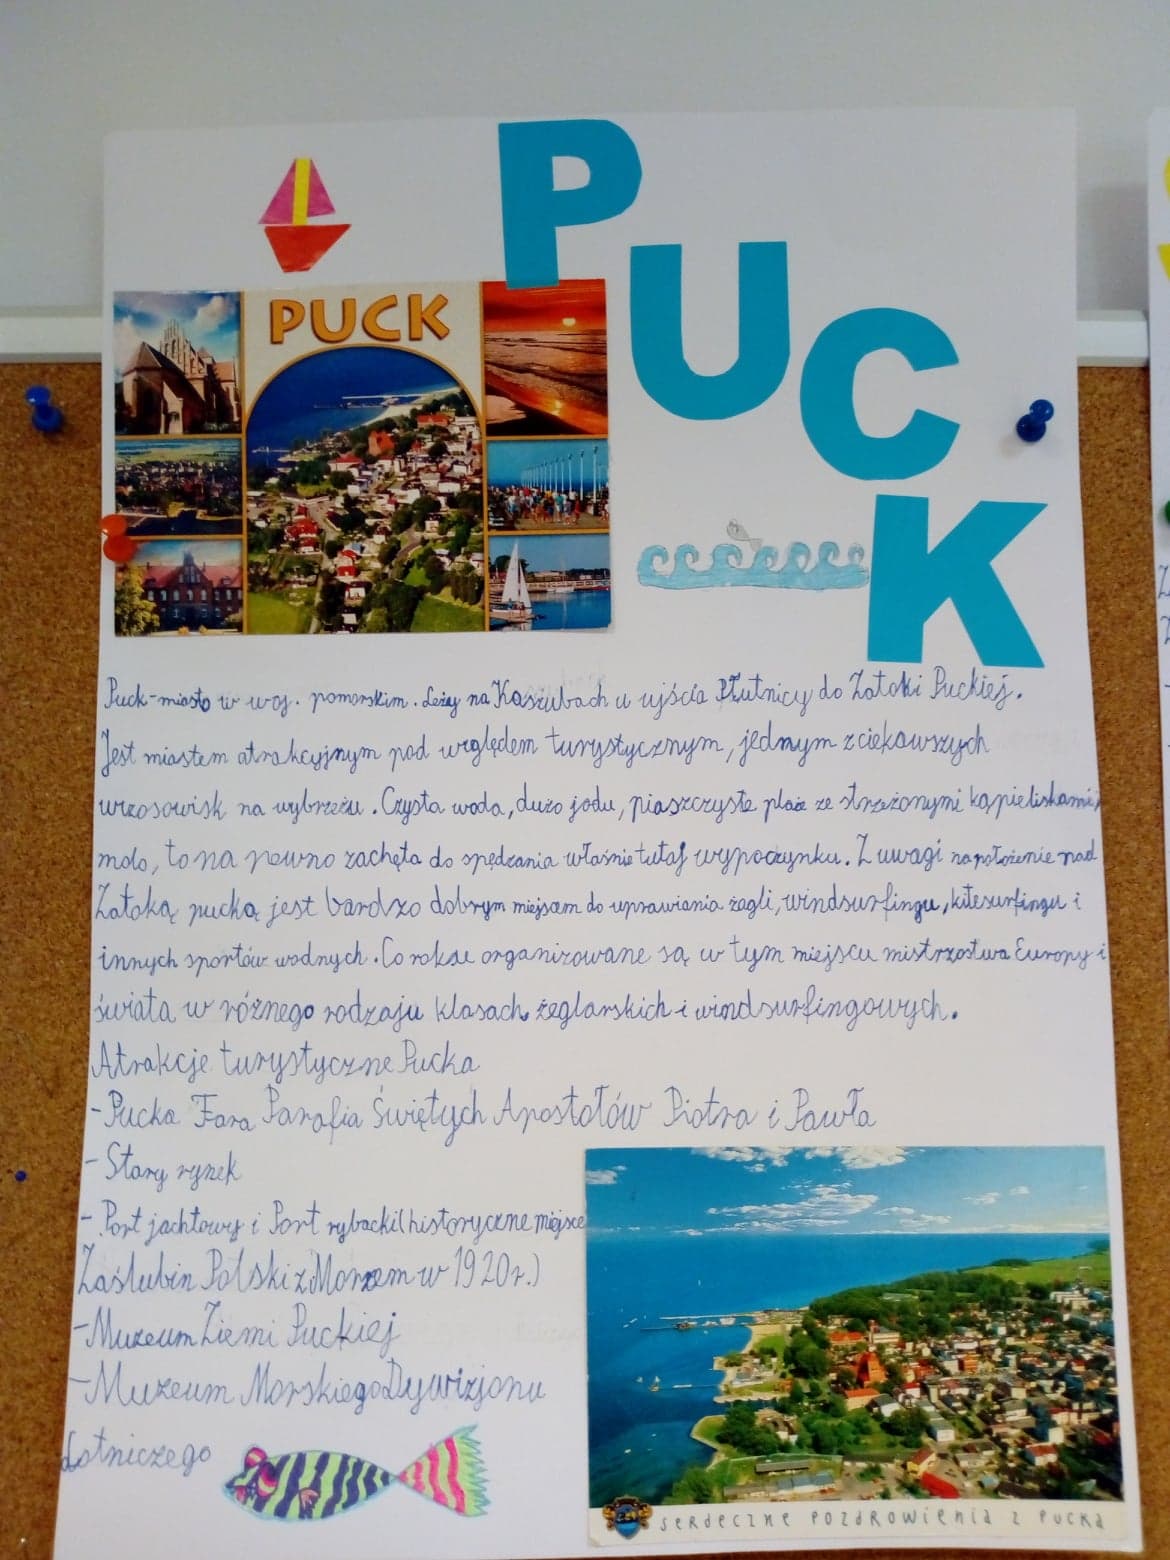 PUCK
PUCK
Puck-miasto w woj. pomorskim. Leży na Kaszubach u ujścia Płutnicy do Zatoki Puckiej.
Jest miastem atrakcyjnym pod względem turystycznym, jednym z ciekawszych
wrzosowisk na wybrzeżu. Czysta woda, dużo jodu, piaszczyste plaże ze strzeżonymi kąpieliskami,
molo, to na pewno zachęta do spędzania właśnie tutaj wypoczynku. Z uwagi na położenie nad
Zatoką pucką jest bardzo dobrym miejscem do uprawiania żagli, windsurfingu, kitesurfingu i
innych sportów wodnych. Co rok organizowane są w tym miejscu mistrzostwa Europy i
świata w różnego rodzaju klasach żeglarskich i windsurfingowych.
Atrakcje turystyczne Pucka
- Pucka Fara Parafia Świętych Apostołów Piotra i Pawła
- Stary rynek
- Port jachtowy i Port rybacki (historyczne miejsce
Zaślubin Polski z Morzem w 1920r.)
- Muzeum Ziemi Puckiej
- Muzeum Morskiego Dywizjonu
Lotniczego
serdeczne pozdrowienia z pucka